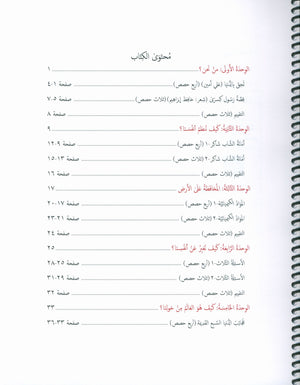 مُحتوى الكِتاب
الوِحدَةُ الأُولى: مَنْ نَحن؟ ١
نَحوَ الدُّنيا (علي أمين) (أربع حصص) صفحة ١-٤
قِصَّةُ رَسول كِسرى (شعر: حافظ إبراهيم) (ثلاث حصص) صفحة ٥-٧
التقييم (ثلاث حصص) صفحة ٨
الوِحدَةُ الثّانِيَة: كَيفَ نُنَظِّمُ أَنفُسَنا؟ ٩
الشّاب شاكر ١٠ (أربع حصص) صفحة ٩-١٢
الشّاب شاكر ٢٠ (ثلاث حصص) صفحة ١٣-١٥
التقييم (ثلاث حصص) صفحة ١٦
الوِحدَةُ الثّالِثَة: المُحافَظَةُ عَلى الأَرض ١٧
المَوادُّ الكيميائِيَّة ١٠ (أربع حصص) صفحة ١٧-٢٠
المَوادُّ الكيميائِيَّة ٢٠ (ثلاث حصص) صفحة ٢١-٢٣
التقييم (ثلاث حصص) صفحة ٢٤
الوِحدَةُ الرّابِعَة: كَيفَ نُعَبِّرُ عَنْ أَنفُسِنا؟ ٢٥
الأسئِلَةُ الثَّلاث ١٠ (أربع حصص) صفحة ٢٥-٢٨
الأسئِلَةُ الثَّلاث ٢٠ (ثلاث حصص) صفحة ٢٩-٣١
التقييم (ثلاث حصص) صفحة ٣٢
الوِحدَةُ الخامِسَة: كَيفَ هُوَ العالَمُ مِنْ حَولِنا؟ ٣٣
عَجائِبُ الدُّنيا السَّبع القَديمَة (أربع حصص) صفحة ٣٣-٣٦